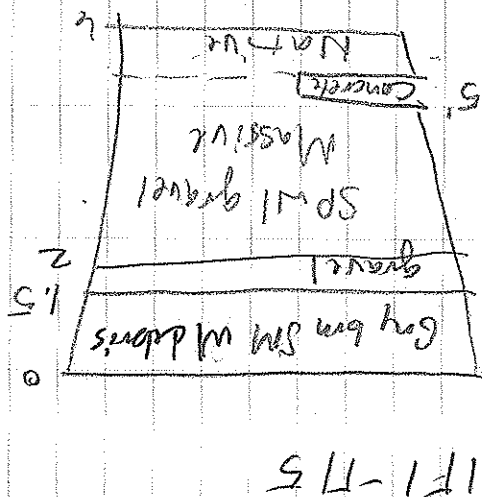 0
Gry brn SM w/ debris
1.5
gravel
2
SP w/ gravel
Massive
5'
Concrete
Native